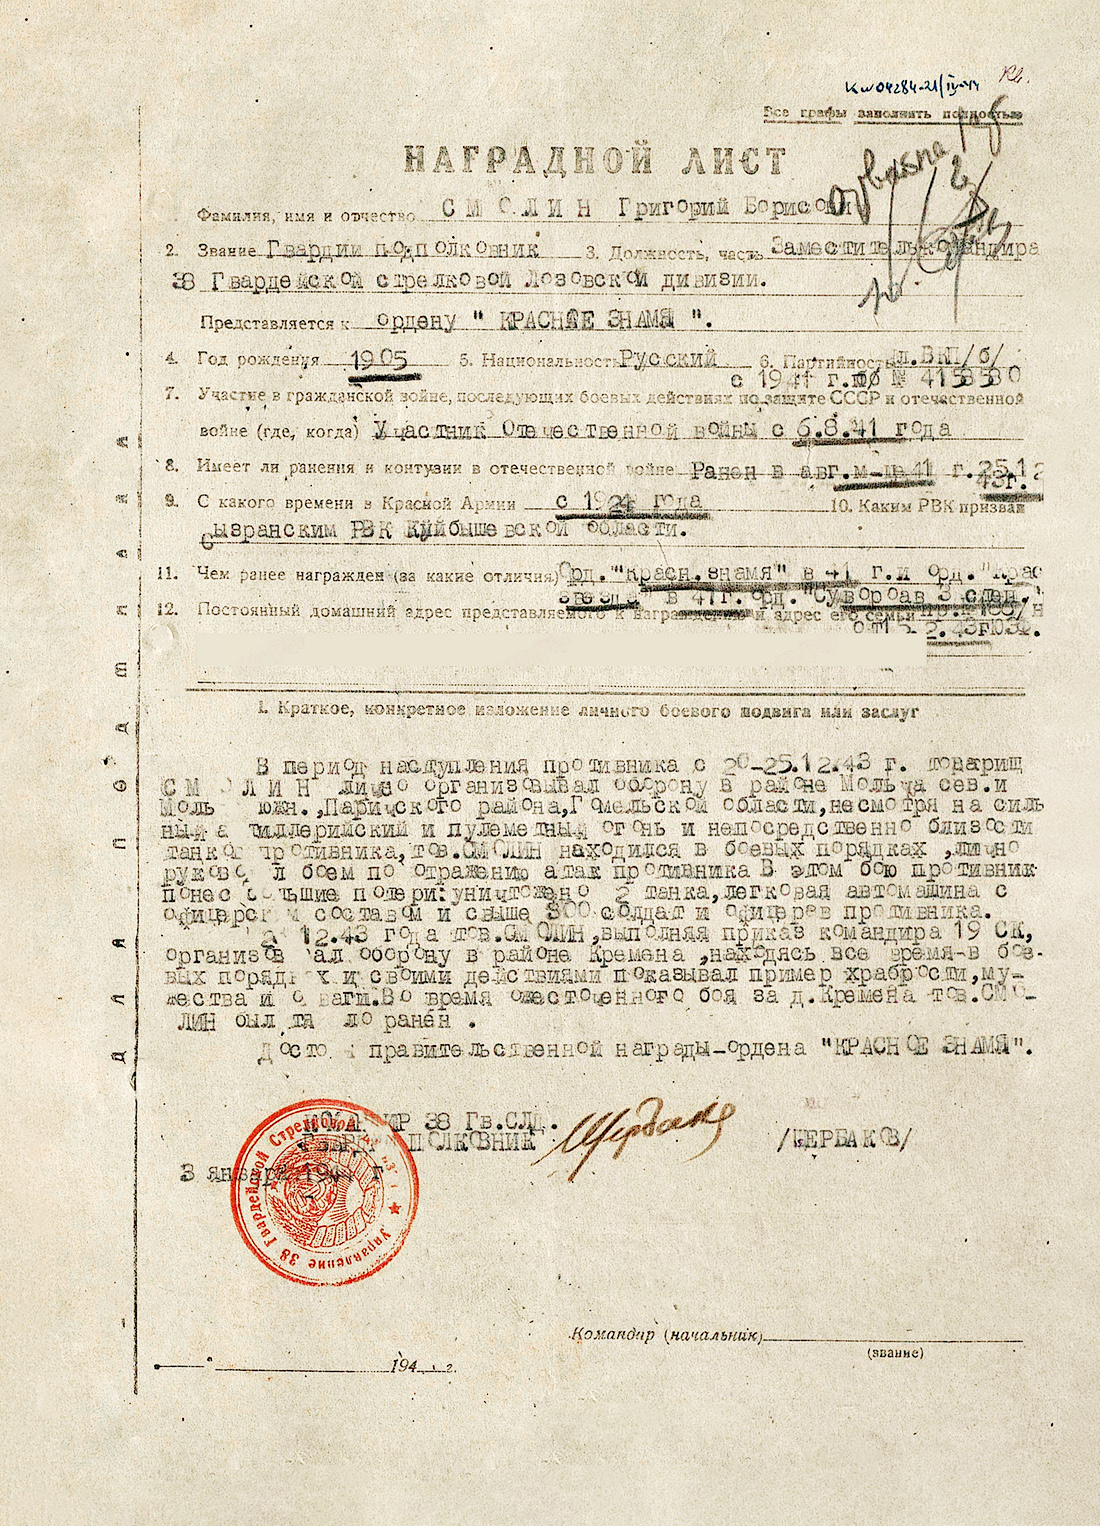 Кш 04284-21/IV-44
Все графы заполнить полностью
НАГРАДНОЙ ЛИСТ
Фамилия, имя и отчество СМОЛИН Григорий Борисович
2. Звание Гвардии подполковник 3. Должность, часть Заместитель командира
38 Гвардейской стрелковой Лозовской дивизии.
Представляется к ордену " КРАСНОЕ ЗНАМЯ ".
4. Год рождения 1905 5. Национальность Русский 6. Партийность чл.ВКП/б/
с 1941 г.
7. Участие в гражданской войне, последующих боевых действиях по защите СССР и отечественной
войне (где, когда) Участник Отечественной войны с 6.8.41 года
8. Имеет ли ранения и контузии в отечественной войне Ранен в авг.м-ца 41 г. 25.12
43г.
9. С какого времени в Красной Армии с 1924 года 10. Каким РВК призван
Сызранским РВК Куйбышевской области.
11. Чем ранее награжден (за какие отличия) Орд."Красн.знамя" в 41 г.и орд."Крас
звезда" в 41г. орд. "Суворов 3 степ."
12. Постоянный домашний адрес представляемого к награждению и адрес его семьи
1. Краткое, конкретное изложение личного боевого подвига или заслуг
В период наступления противника с 20-25.12.43 г. товарищ
СМ ЛИН лично организовывал оборону в районе Мольча сев.и
Моль южн.,Паричского района,Гомельской области,несмотря на силь
ный а тиллерийский и пулеметный огонь и непосредственно близости
танков противника,тов.СМОЛИН находился в боевых порядках ,лично
руково л боем по отражению атак противника В этом бою противник
понес большие потери:уничтожено 2 танка,легковая автомашина с
офицерск м составом и свыше 300 солдат и офицеров противника.
12.43 года тов.СМОЛИН,выполняя приказ командира 19 СК,
организов ал оборону в районе Кремена ,находясь все время-в бое-
вых порядк х и своими действиями показывал пример храбрости,му-
жества и о ваги.Во время ожесточенного боя за д.Кремена тов.СМО-
ЛИН был тя ло ранен .
Досто правительственной награды-ордена "КРАСНОЕ ЗНАМЯ".
КОМАНДИР 38 Гв.СЛД.
ГВАРДИИ ПОЛКОВНИК Щербаков /ЩЕРБАКОВ/
3 января 1944 г
Управление 38 Гвардейской Стрелковой
Командир (начальник)
(звание)
194 г.
Для подшивки